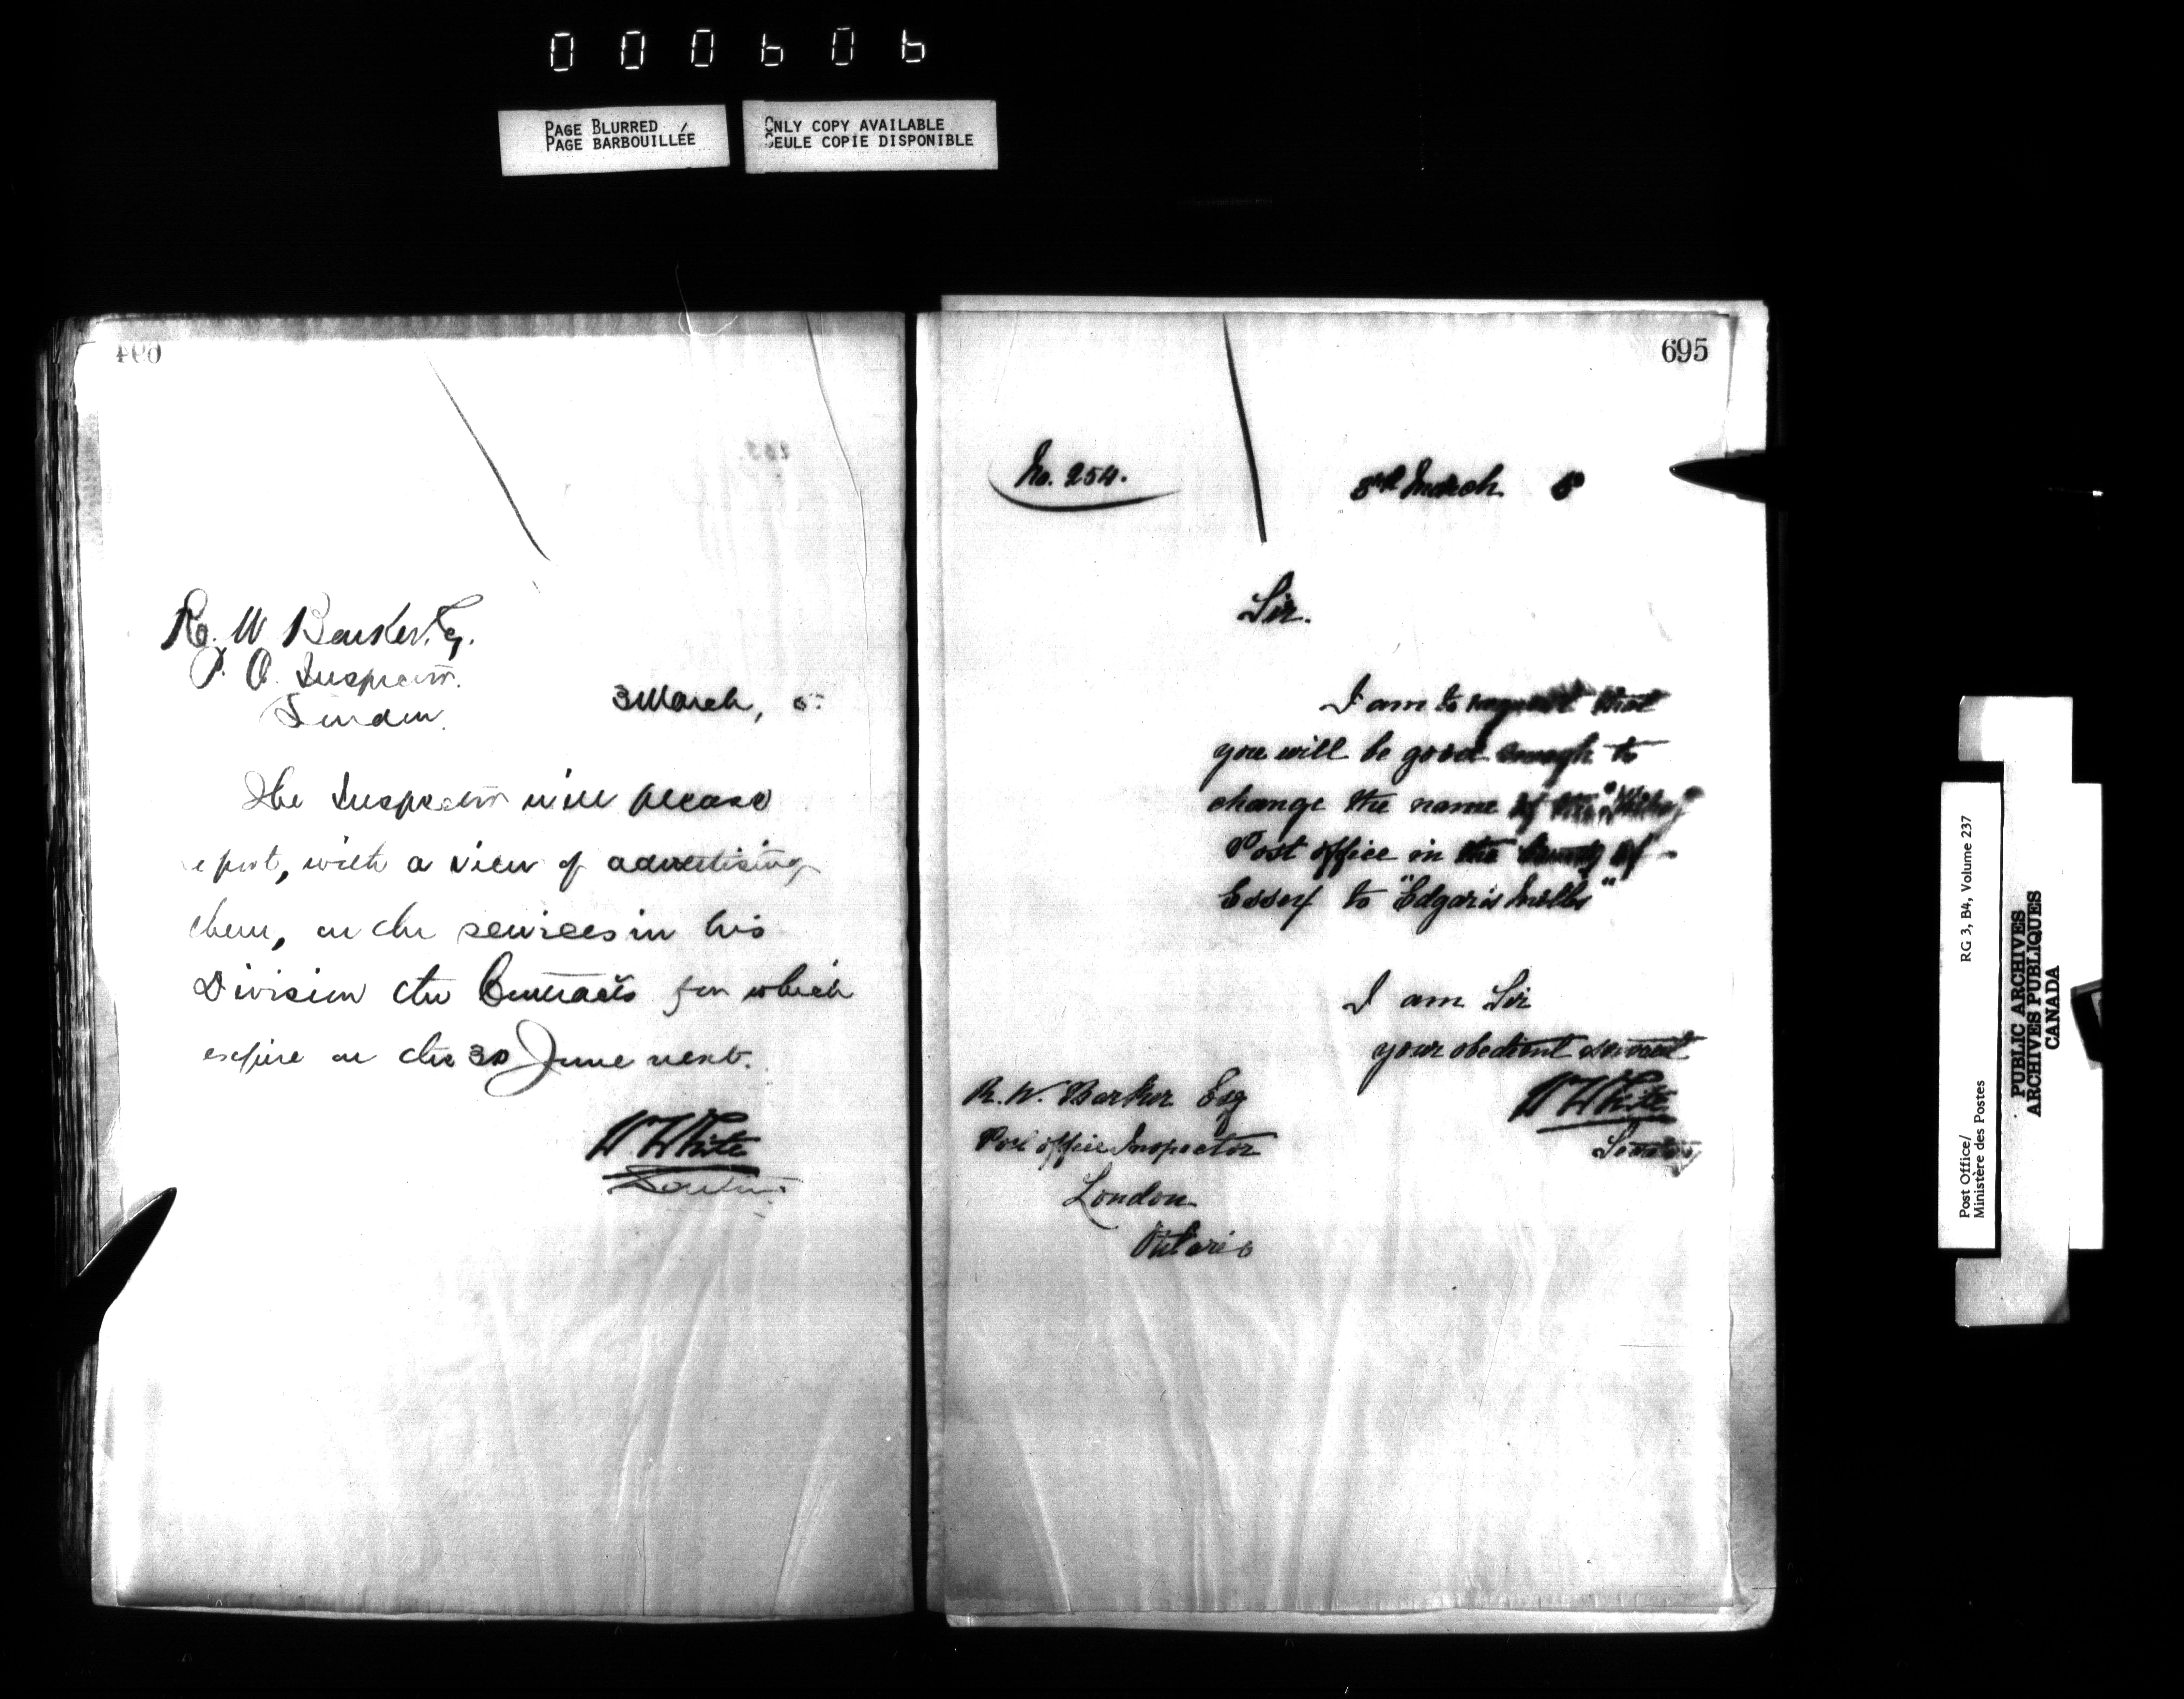 000606
PAGE BLURRED
PAGE BARBOUILLÉE
ONLY COPY AVAILABLE
SEULE COPIE DISPONIBLE
R. W Barker, Esq.
P. O. Inspector.
London.
3 March, 5.
The Inspector will please
report, with a view of advertising
them, on the services in his
Division the Contracts for which
expire on the 30 June next.
W White
695
No. 254.
3rd March 5
Sir.
I am to request that
you will be good enough to
change the name of the
Post office in the County of
Essex to "Edgar's Mills"
I am Sir
your obedient servant
W White
Secretary
R. W. Barker Esq
Post office Inspector
London
Ontario
Post Office/
Ministère des Postes
RG 3, B4, Volume 237
PUBLIC ARCHIVES
ARCHIVES PUBLIQUES
CANADA